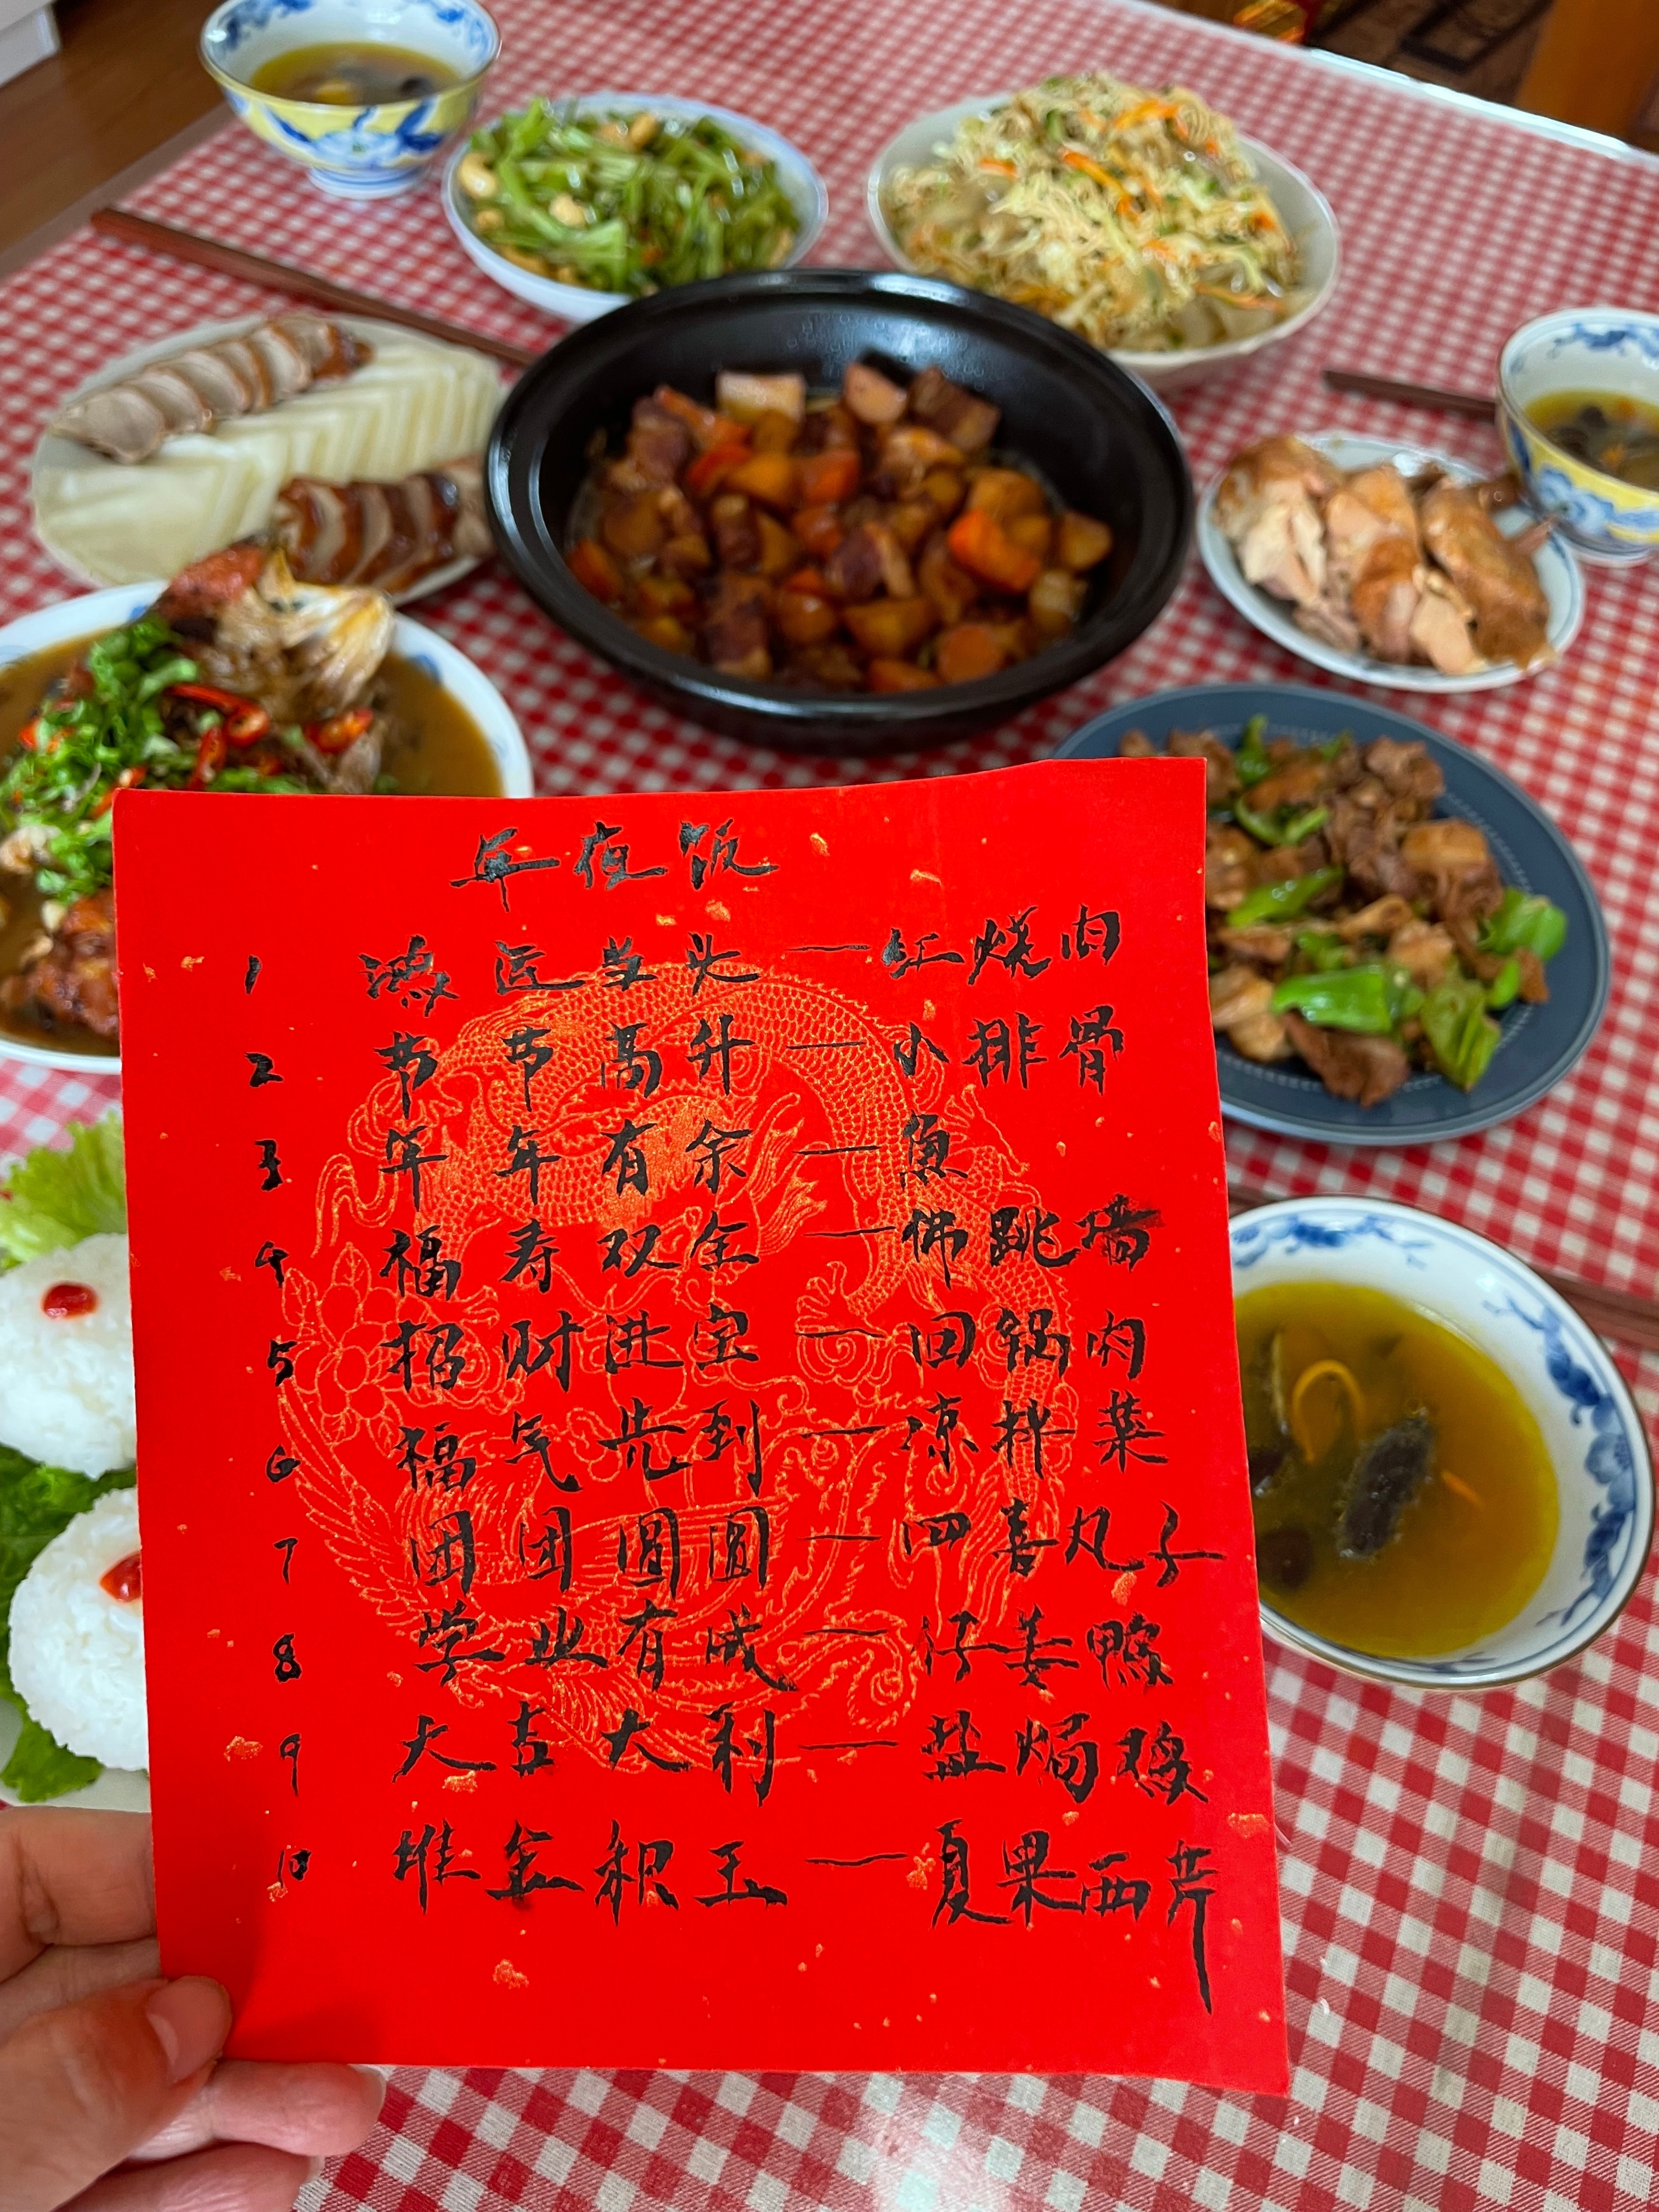 年夜饭
1 鸿运当头——红烧肉
2 节节高升——小排骨
3 年年有余——魚
4 福寿双全——佛跳墙
5 招财进宝——回锅肉
6 福气先到——凉拌菜
7 团团圆圆——四喜丸子
8 学业有成——仔姜鸭
9 大吉大利——盐焗鸡
10 堆金积玉——夏果西芹